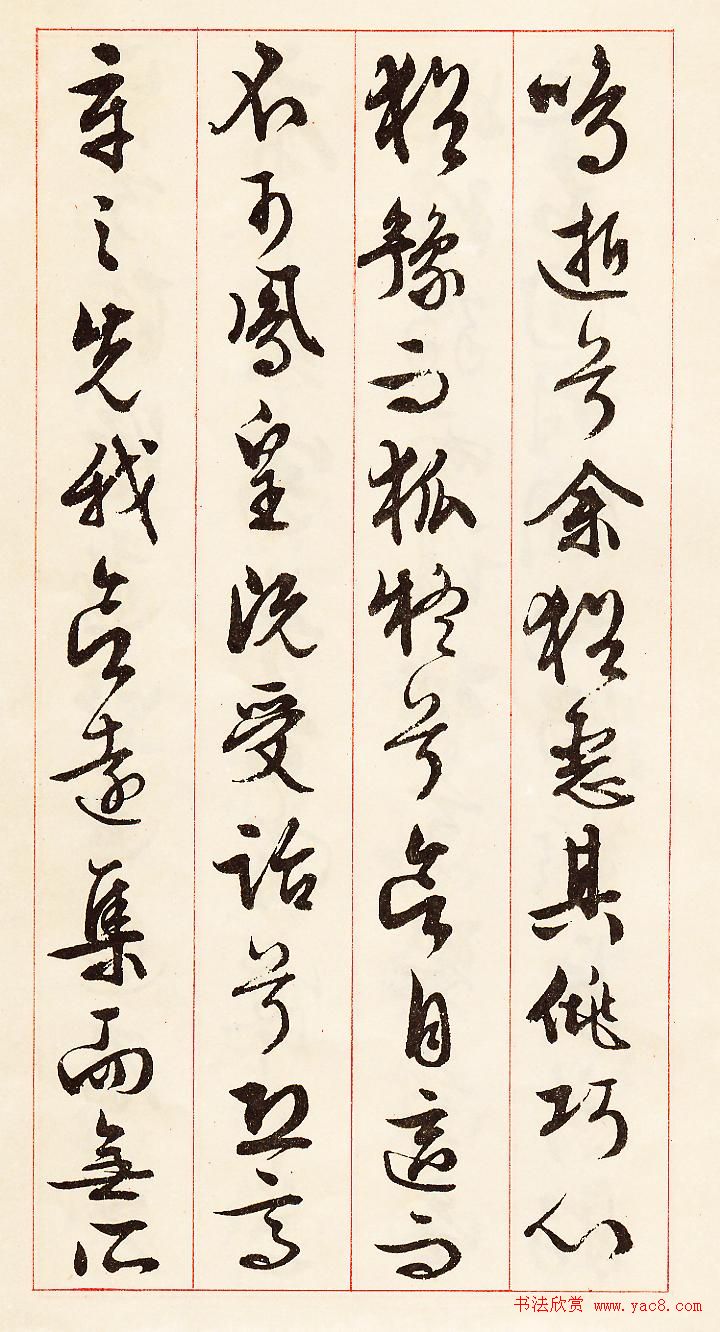 鳴逝兮余猶惡其佻巧心
猶豫而狐疑兮欲自適而
不可鳳皇既受詒兮恐高
辛之先我欲遠集而無所
书法欣赏 www.yac8.com